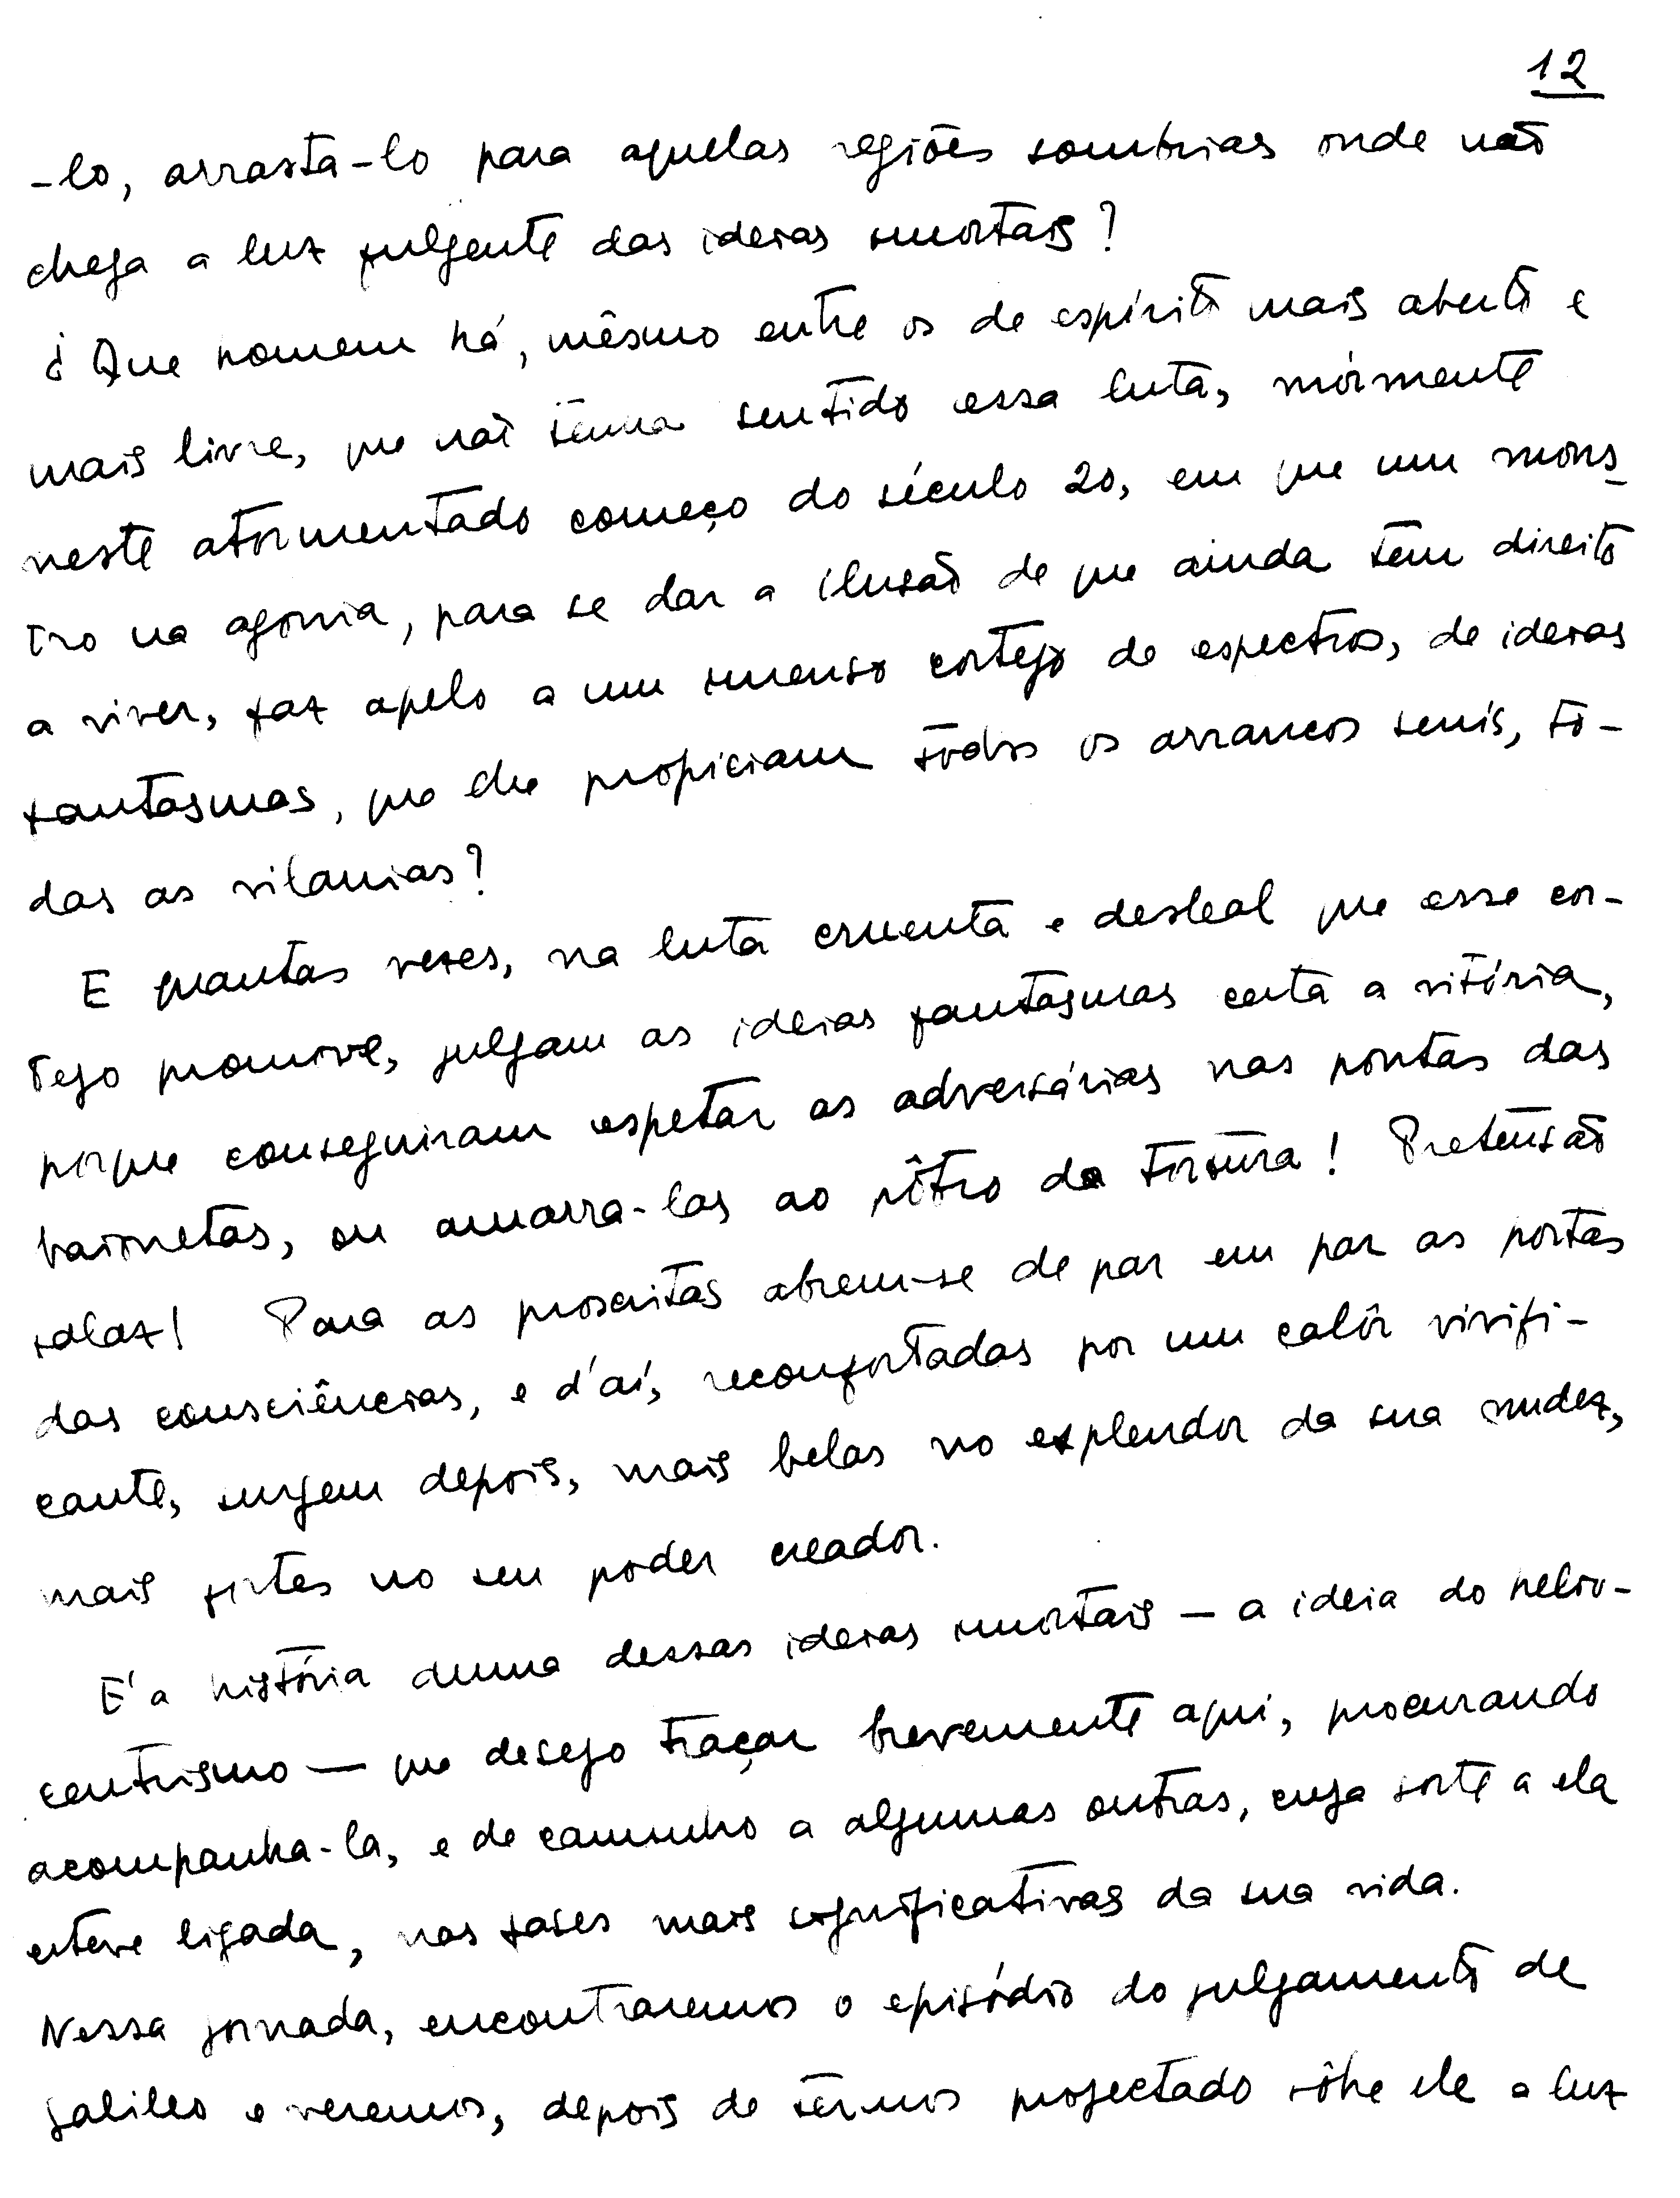 12
-lo, arrasta-lo para aquelas regiões sombrias onde não
chega a luz fulgente das ideias imortais?
¿Que homem há, mêsmo entre os de espírito mais aberto e
mais livre, que não tenha sentido essa luta, mórmente
neste atormentado começo do século 20, em que um mons-
tro na agonia, para se dar a ilusão de que ainda tem direito
a viver, faz apelo a um imenso cortejo de espectros, de ideias
fantasmas, que lhe propiciam todos os arrancos senis, to-
das as vilanias?
E quantas vezes, na luta cruenta e desleal que esse cor-
tejo promove, julgam as ideias fantasmas certa a vitória,
porque conseguiram espetar as adversárias nas pontas das
baionetas, ou amarra-las ao pôtro da tortura! Pretensão
falaz! Para as proscritas abrem-se de par em par as portas
das consciências, e d'aí, reconfortadas por um calôr vivifi-
cante, surgem depois, mais belas no explendor da sua nudez,
mais fortes no seu poder creador.
E' a história duma dessas ideias imortais — a ideia do helio-
centrismo — que desejo traçar brevemente aqui, procurando
acompanha-la, e de caminho a algumas outras, cuja sorte a ela
esteve ligada, nas fases mais significativas da sua vida.
Nessa jornada, encontraremos o episódio do julgamento de
Galileo e veremos, depois de termos projectado sôbre ele a luz